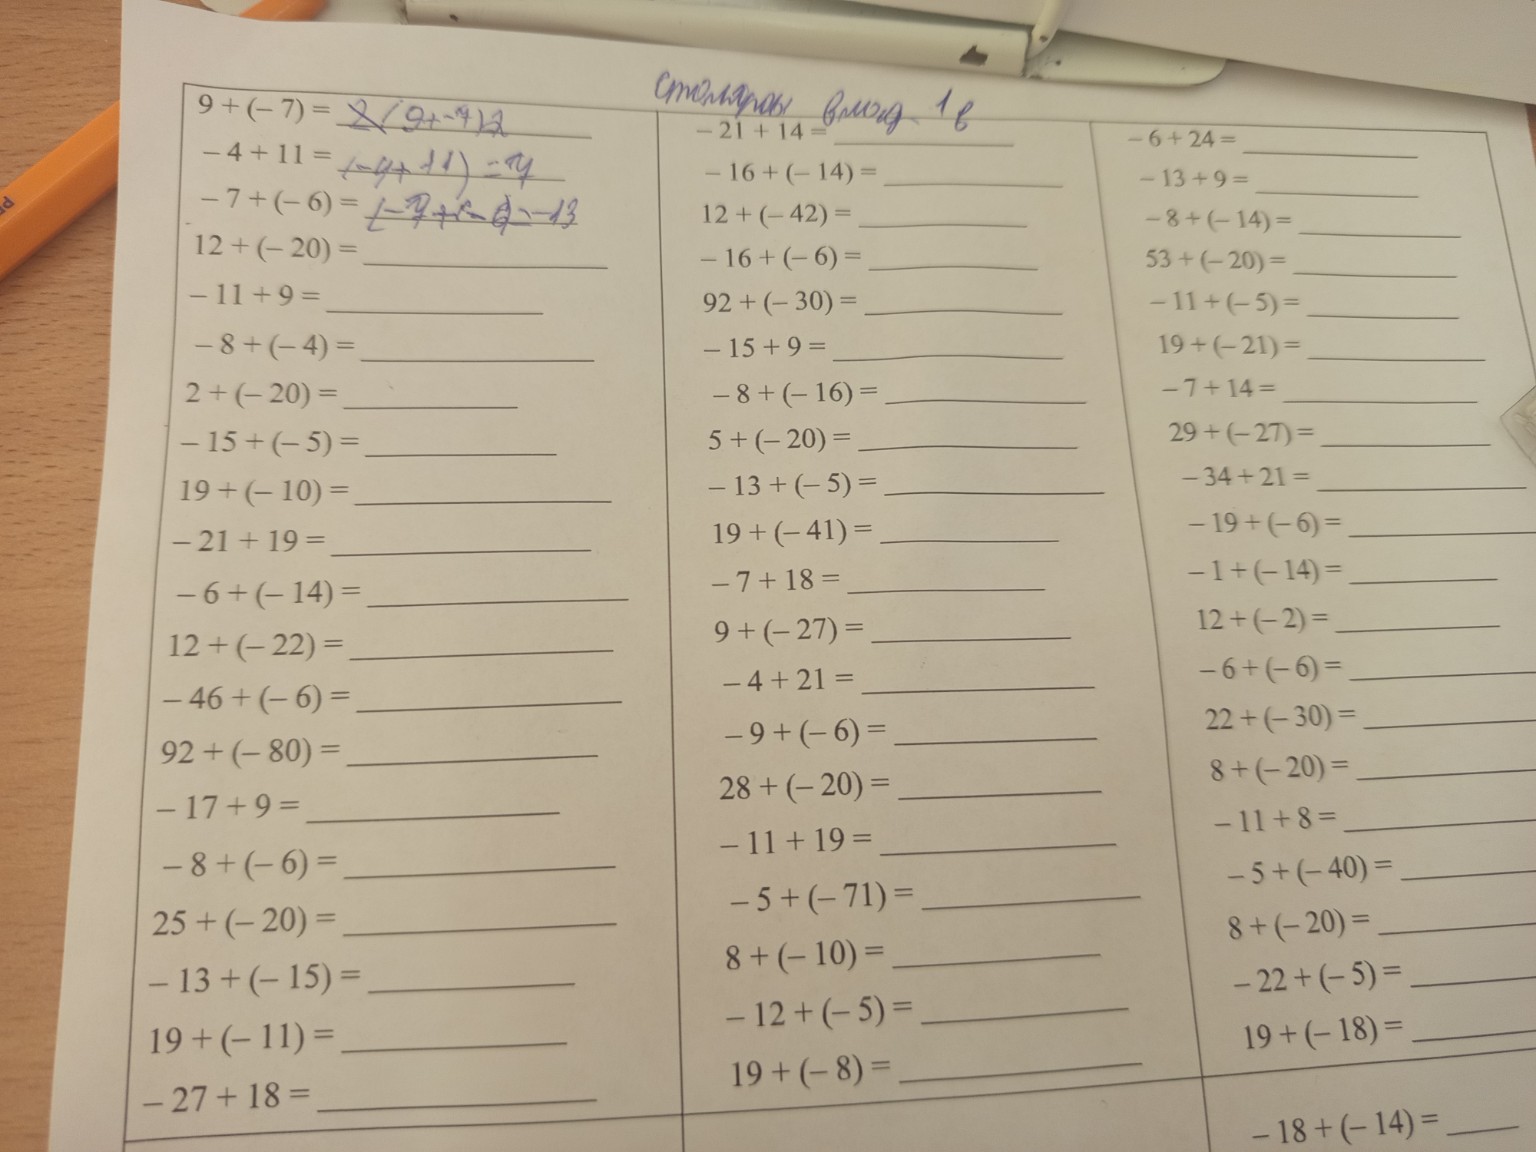 Столяров влад 1 в
9 + (– 7) = 2 (9+-7)2
– 4 + 11 = (-4+11) = 7
– 7 + (– 6) = (-7+(-6)=-13
12 + (– 20) =
– 11 + 9 =
– 8 + (– 4) =
2 + (– 20) =
– 15 + (– 5) =
19 + (– 10) =
– 21 + 19 =
– 6 + (– 14) =
12 + (– 22) =
– 46 + (– 6) =
92 + (– 80) =
– 17 + 9 =
– 8 + (– 6) =
25 + (– 20) =
– 13 + (– 15) =
19 + (– 11) =
– 27 + 18 =
– 21 + 14 =
– 16 + (– 14) =
12 + (– 42) =
– 16 + (– 6) =
92 + (– 30) =
– 15 + 9 =
– 8 + (– 16) =
5 + (– 20) =
– 13 + (– 5) =
19 + (– 41) =
– 7 + 18 =
9 + (– 27) =
– 4 + 21 =
– 9 + (– 6) =
28 + (– 20) =
– 11 + 19 =
– 5 + (– 71) =
8 + (– 10) =
– 12 + (– 5) =
19 + (– 8) =
– 6 + 24 =
– 13 + 9 =
– 8 + (– 14) =
53 + (– 20) =
– 11 + (– 5) =
19 + (– 21) =
– 7 + 14 =
29 + (– 27) =
– 34 + 21 =
– 19 + (– 6) =
– 1 + (– 14) =
12 + (– 2) =
– 6 + (– 6) =
22 + (– 30) =
8 + (– 20) =
– 11 + 8 =
– 5 + (– 40) =
8 + (– 20) =
– 22 + (– 5) =
19 + (– 18) =
– 18 + (– 14) =